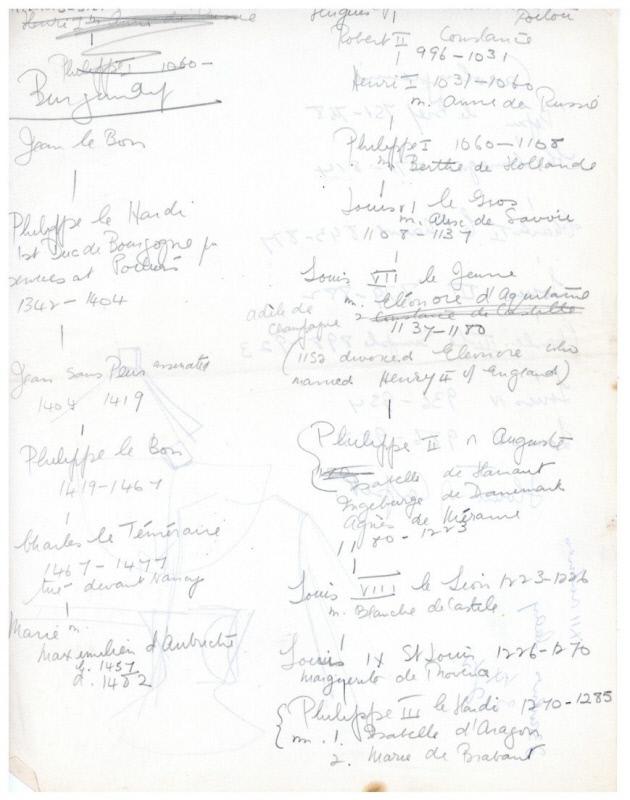 Philippe I 1060-
Burgandy
Jean le Bon
Philippe le Hardi
1st Duc de Bourgogne pr
services at Poitiers
1342-1404
Jean sans Peur assassinated
1404 1419
Philippe le Bon
1419-1467
Charles le Téméraire
1467-1477
tué devant Nancy
Marie m.
Maximilien d'Autriche
b. 1457
d. 1482
Hugues
Poitou
Robert II Constance
996-1031
Henri I 1031-1060
m. Anne de Russie
Philippe I 1060-1108
m. Berthe de Hollande
Louis VI le Gros
m. Alix de Savoie
1108-1137
Louis VII le Jeune
m. Eléonore d'Aquitaine
2 Constance de Castille
adèle de
Champagne
1137-1180
(1152 divorced Eleonore who
married Henry II of England)
Philippe II Auguste
Isabelle de Hainaut
Ingeburge de Danemark
Agnès de Méranie
1180-1223
Louis VIII le Lion 1223-1226
m. Blanche de Castile
Louis IX St Louis 1226-1270
Marguerite de Provence
Philippe III le Hardi 1270-1285
m. 1. Isabelle d'Aragon
2. Marie de Brabant